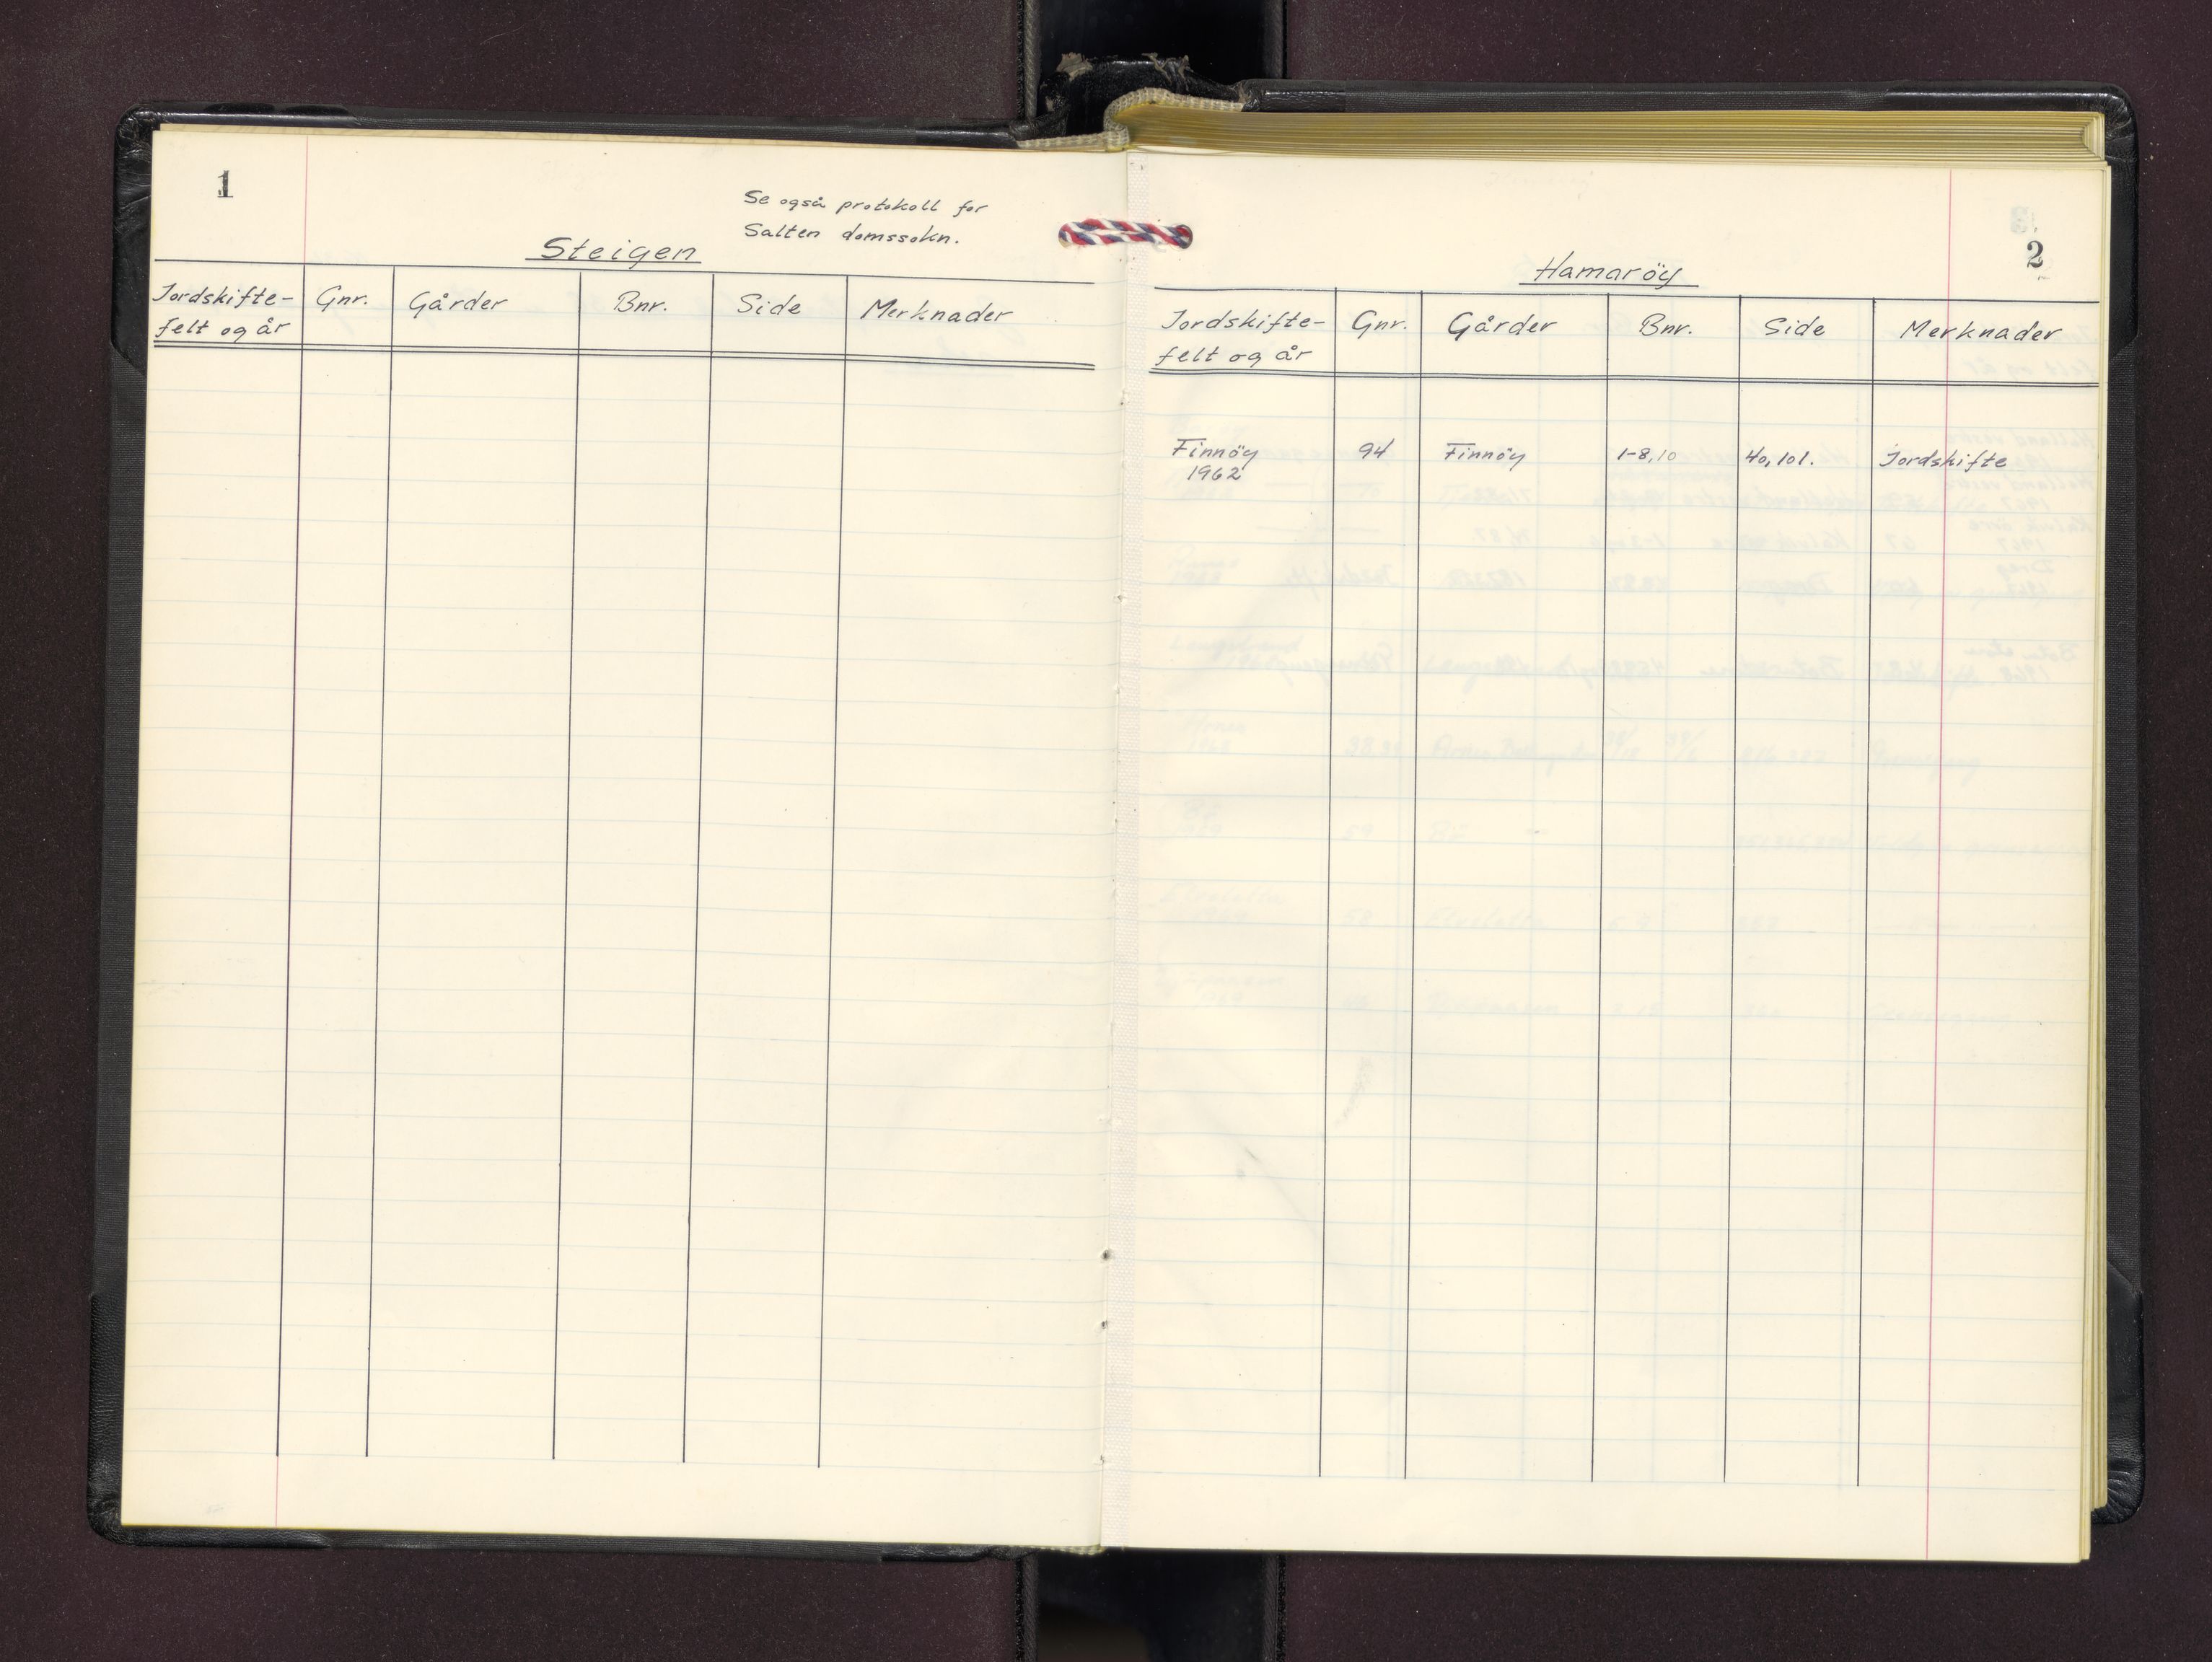 1
Se også protokoll for
Salten domssokn.
Steigen
Jordskifte- Gnr. Gårder Bnr. Side Merknader
felt og år
2
Hamaröy
Jordskifte- Gnr. Gårder Bnr. Side Merknader
felt og år
Finnöy 94 Finnöy 1-8,10 40,101. Jordskifte
1962